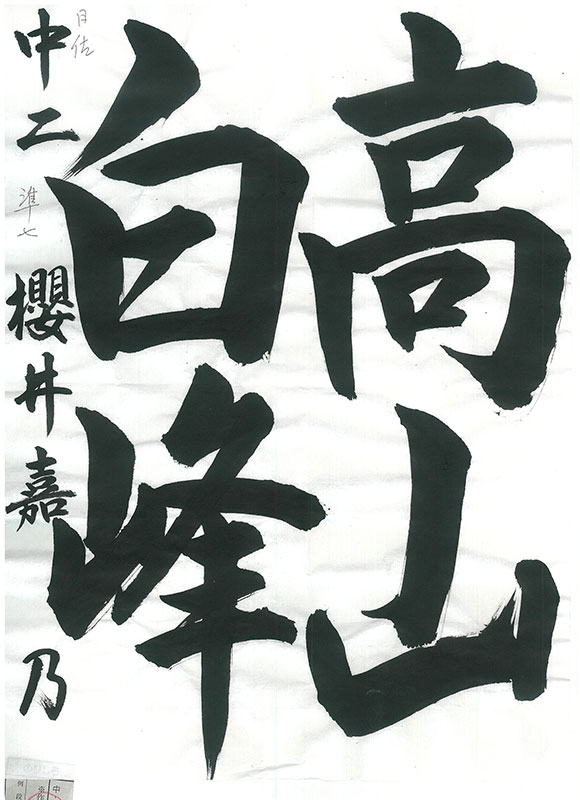 高山
白峰
中二 櫻井嘉乃
準七